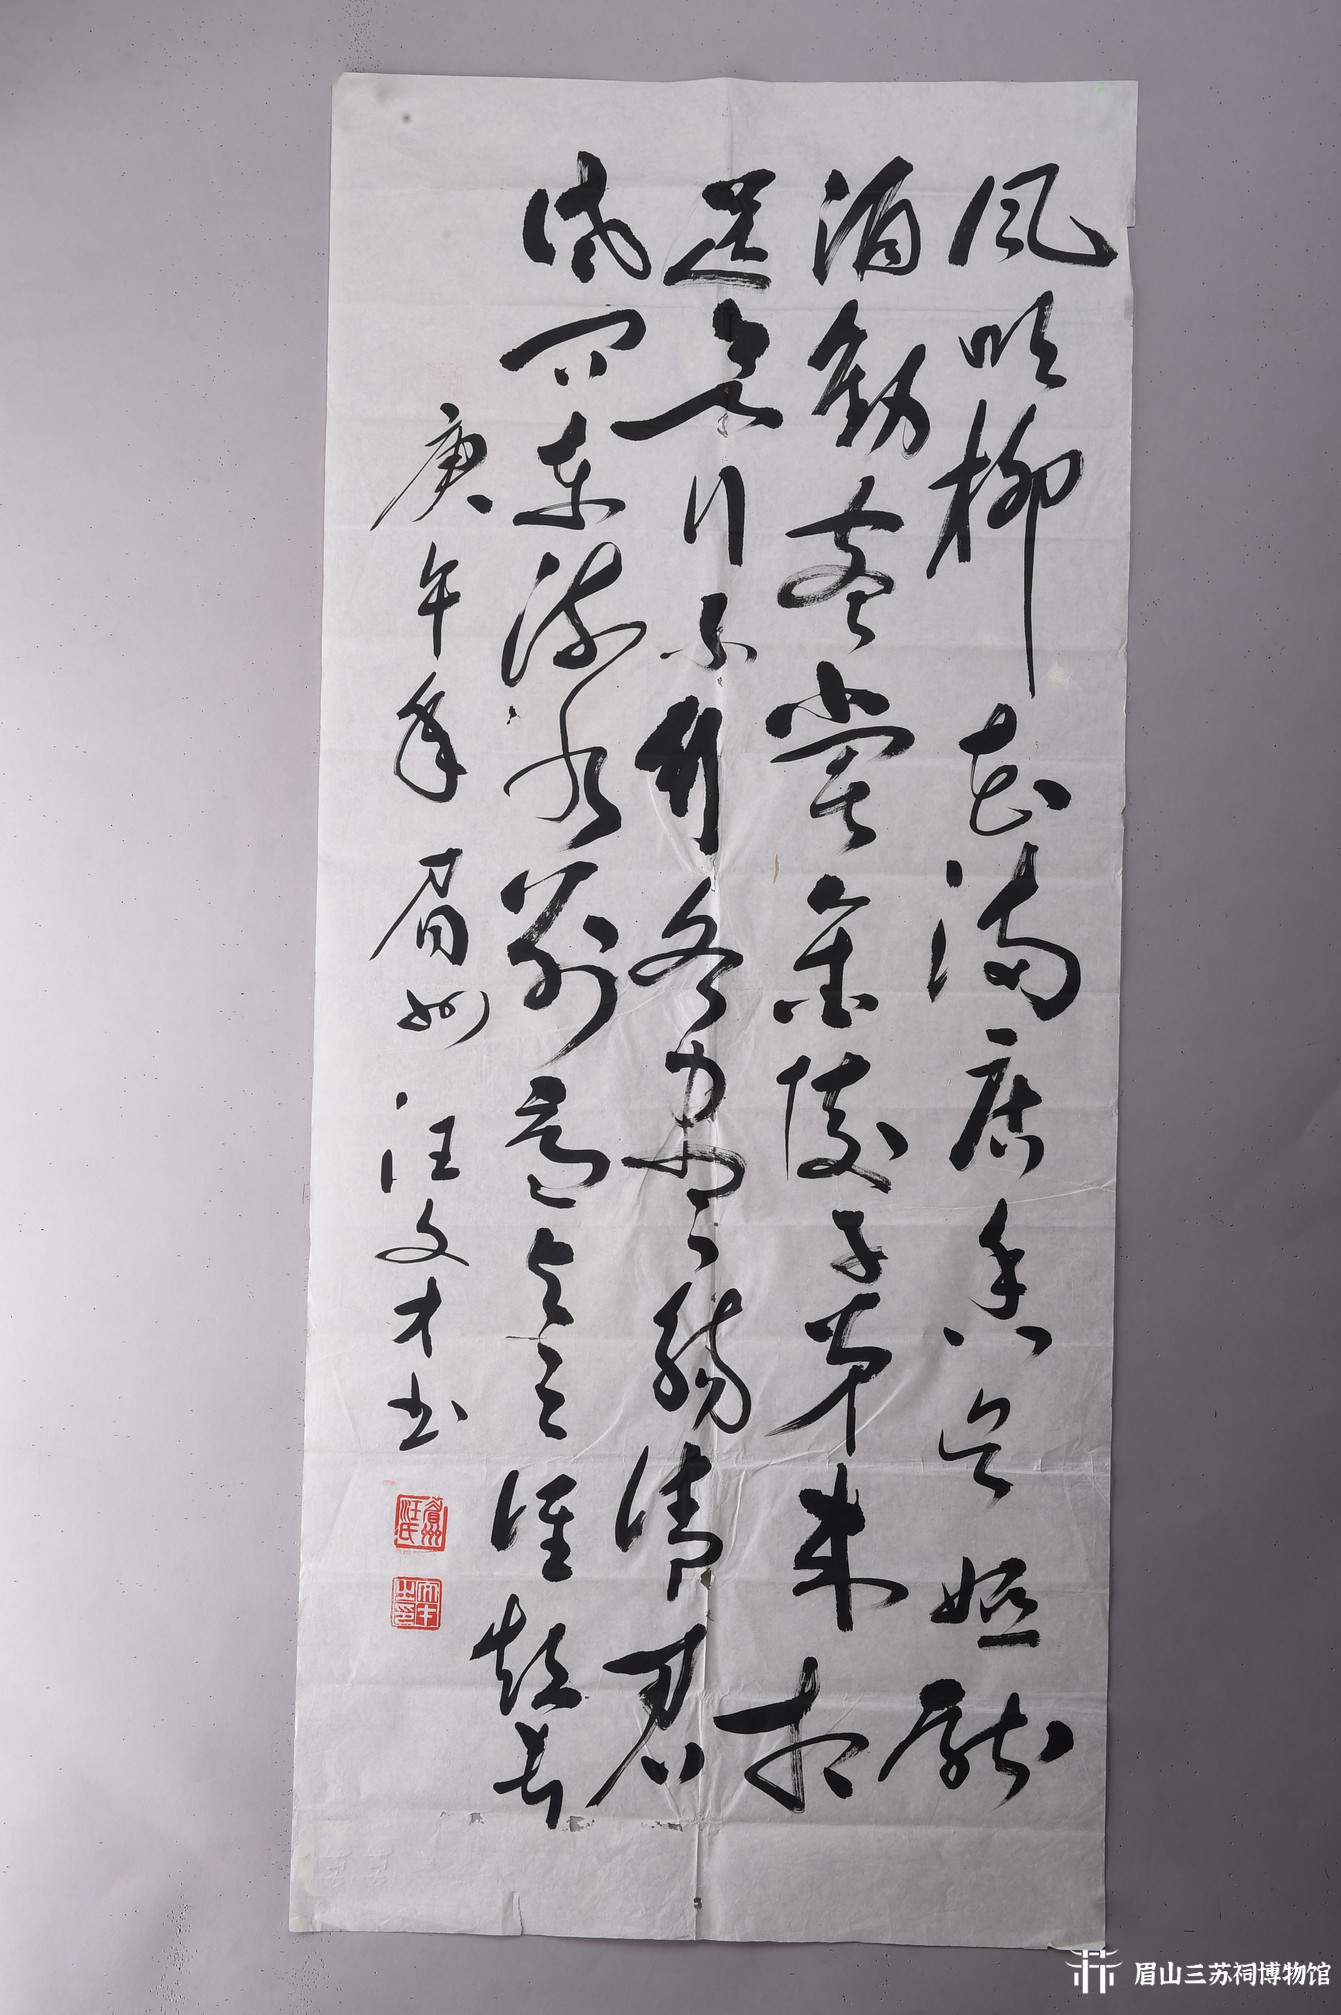 風吹柳花滿店香吳姬壓
酒勸客嘗金陵子弟來相
送欲行不行各盡觴請君
試問東流水別意與之誰短長
庚午年眉州汪文才书
眉州汪氏
文才之印
眉山三苏祠博物馆